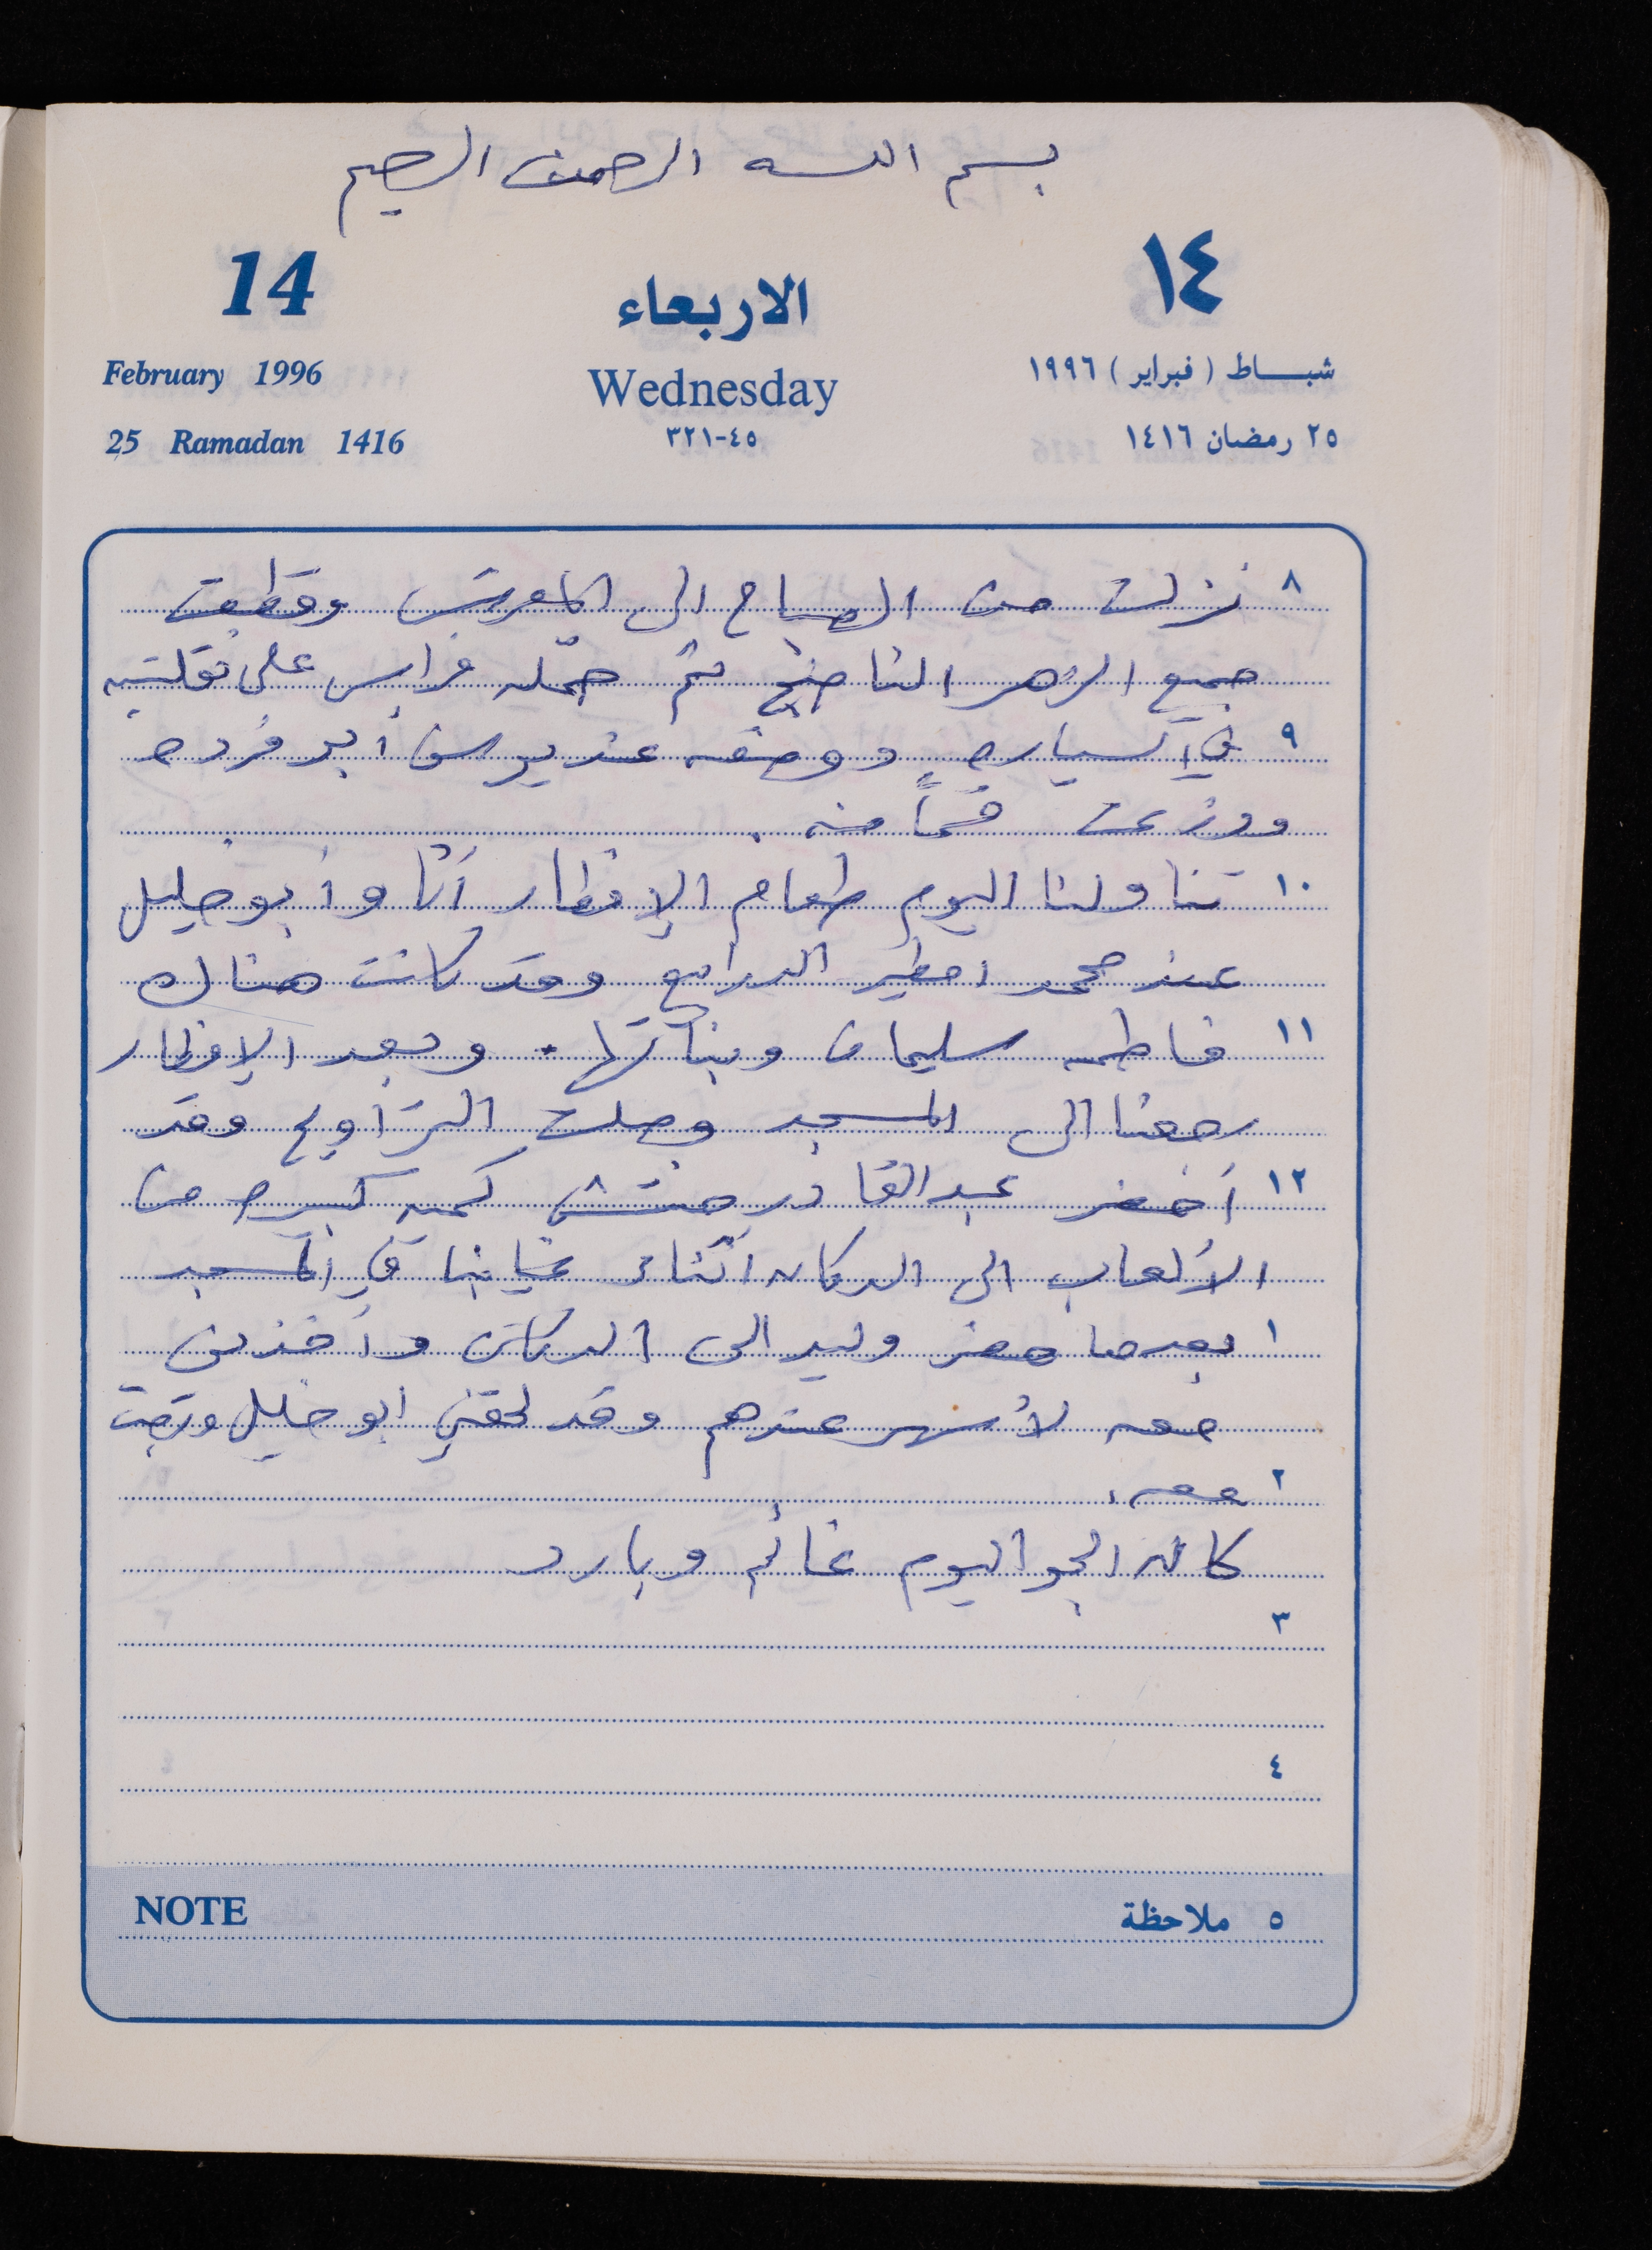 بسم الله الرحمن الرحيم
14
الاربعاء
١٤
February 1996
Wednesday
شباط (فبراير) ١٩٩٦
25 Ramadan 1416
٤٥-٣٢١
٢٥ رمضان ١٤١٦
٨ نزلت من الصباح الى وقطفت
جميع الزهر الناضج ثم حمله فراس على نقلتين
٩ في السياره ووضعه عند أبو فرده
ووزعت قسماً منه .
١٠ تناولنا اليوم طعام الإفطار أنا وأبو خليل
عند محمد الدرابيع وقد كانت هناك
١١ فاطمه سليمان وبناتها . وبعد الإفطار
رجعنا الى المسجد وصليت التراويح وقد
١٢ أحضر عبد القادر كميه كبيره من
الألعاب الى الدكان أثناء غيابنا في المسجد
١ بعدها حضر وليد الى الدكان وأخذني
معه لأسهر عندهم وقد لحقني ابو خليل ورجعت
٢ معه .
كان الجو اليوم غائم وبارد
٣
٤
NOTE
٥ ملاحظة